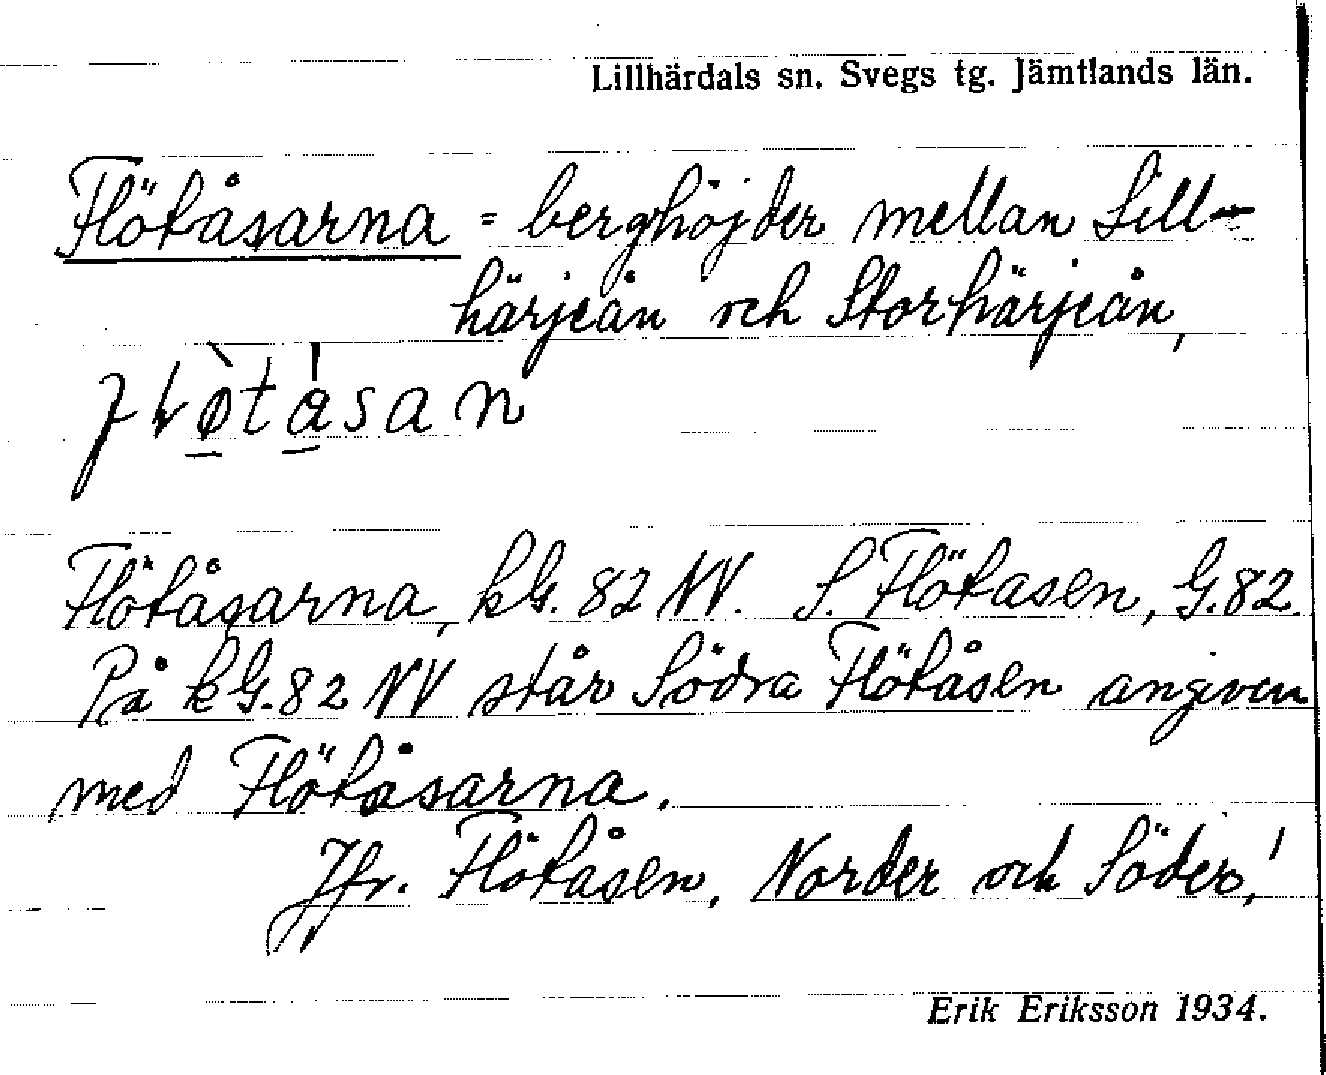 Lillhärdals sn. Svegs tg. Jämtlands län.
Flötåsarna = berghöjder mellan Lill-
härjeån och Storhärjeån,
Flötåsarna, kG. 82 NV. S. Flötåsen, G. 82.
På kG. 82 NV står Södra Flötåsen angiven
med Flötåsarna.
Jfr. Flötåsen, Norder och Söder,!
Erik Eriksson 1934.